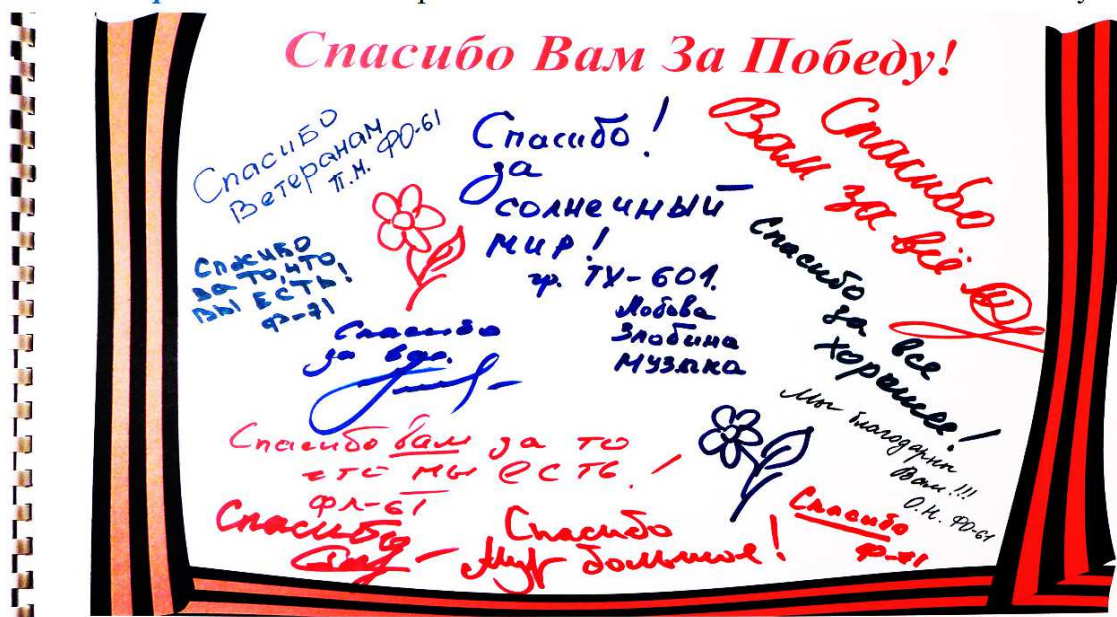 Спасибо Вам За Победу!
Спасибо
Ветеранам
П.Н. ФО-61
Спасибо!
за
солнечный
мир!
гр. ТХ-601.
Лобова
Злобина
Музыка
Спасибо
Вам за всё
Спасибо
за то, что
вы есть!
Ф-71
Спасибо
за все
хорошее!
Спасибо
за все.
Мы благодарны
Вам!!!
О.Н. ФО-61
Спасибо вам за то
что мы есть!
ФЛ-61
Спасибо
Спасибо
большое!
Спасибо
Ф-71